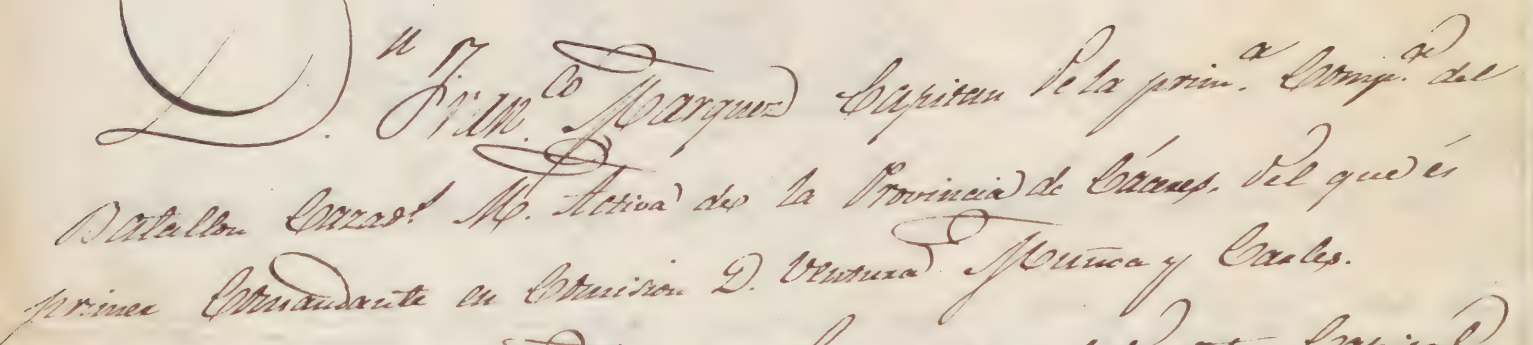 D.n Fran.co Marquez Capitan de la prim.a Comp.a del
Batallon Cazad.s M. Activa de la Provincia de Cáceres, del que és
primer Comandante en Comision D. Ventura y